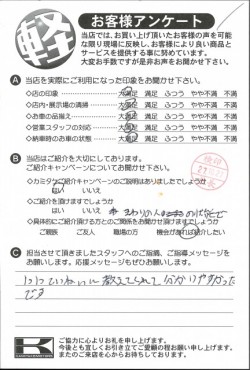 軽
お客様アンケート
当店では、お買い上げ頂いたお客様の声を可能
な限り現場に反映し、お客様により良い商品と
サービスを提供する事に努めています。
大変お手数ですが是非お声をお聞かせ下さい。
A 当店を実際にご利用になった印象をお聞かせ下さい。
◇店の印象 大満足 満足 ふつう やや不満 不満
◇店内・展示場の清掃 大満足 満足 ふつう やや不満 不満
◇お車の品揃え 大満足 満足 ふつう やや不満 不満
◇営業スタッフの対応 大満足 満足 ふつう やや不満 不満
◇納車時のお車の状態 大満足 満足 ふつう やや不満 不満
B 当店はご紹介を大切にしております。
ご紹介キャンペーンについてお聞かせ下さい。
◇カミタウンご紹介キャンペーンのご説明はありましたでしょうか
はい いいえ
◇ご紹介を頂けますでしょうか
はい いいえ
◇具体的にご紹介頂ける方とのご関係をお聞かせ頂けますでしょうか
ご親族 ご友人 職場の方 機会があれば紹介したい
C 担当させて頂きましたスタッフへのご指摘、ご指導メッセージを
お願いします。応援メッセージもぜひお願いします。
1つ1つていねいに教えてくれて分かりやすかった
です
K
ご協力に心よりお礼を申し上げます。
今後とも宜しくお引き立てご愛顧の程お願い申し上げます。
またのご来店を心からお待ちしております。